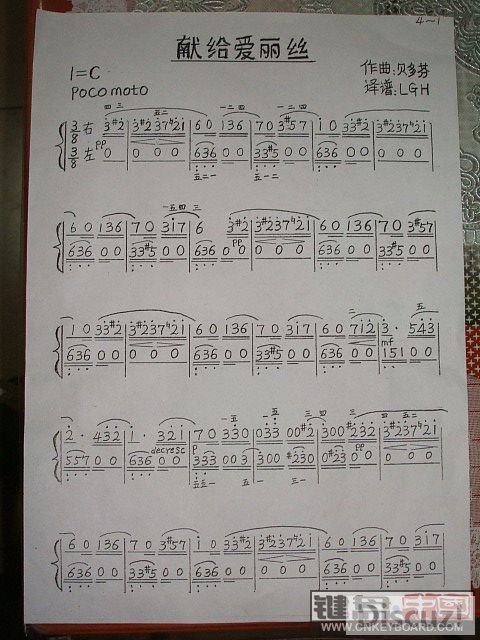 4～1
献给爱丽丝
1=C
作曲:贝多芬
Poco moto
译谱:LGH
四 三 五二 一二四 一二四
3/8 右 3#2 3#237#421 60 136 70 3#57 10 33#2 3#237#421
3/8 左 pp 0 000 636 00 33#5 00 636 00 000
五二一 五一二
一五四 三
60 136 70 317 6 3#2 3#237#421 60 136 70 3#57
636 00 33#5 00 636 pp 0 000 636 00 33#5 00
二 五
10 33#2 3#237#421 60 136 70 317 60 712 3· 543
636 00 000 636 00 33#5 00 636 00 mf 151 00
一五 一五 三四 三 四 五二
2· 432 1· 321 70 330 033 00#2 300 #232 3#237#421
557 00 636 00 decresc p 333 003 300 #230 0#23 00 pp 000
五五一 五 三一
60 136 70 3#57 10 33#2 3#237#421 60 136 70 317
636 00 33#5 00 636 00 000 636 00 33#5 00
键盘中国
WWW.CNKEYBOARD.COM